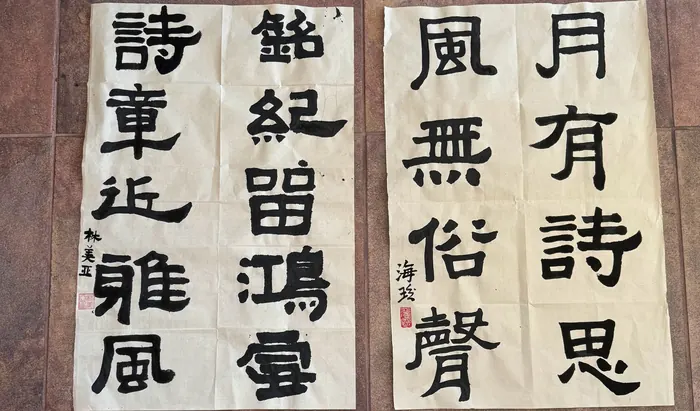 銘紀留鴻雪
詩章近雅風
林美亚
月有詩思
風無俗聲